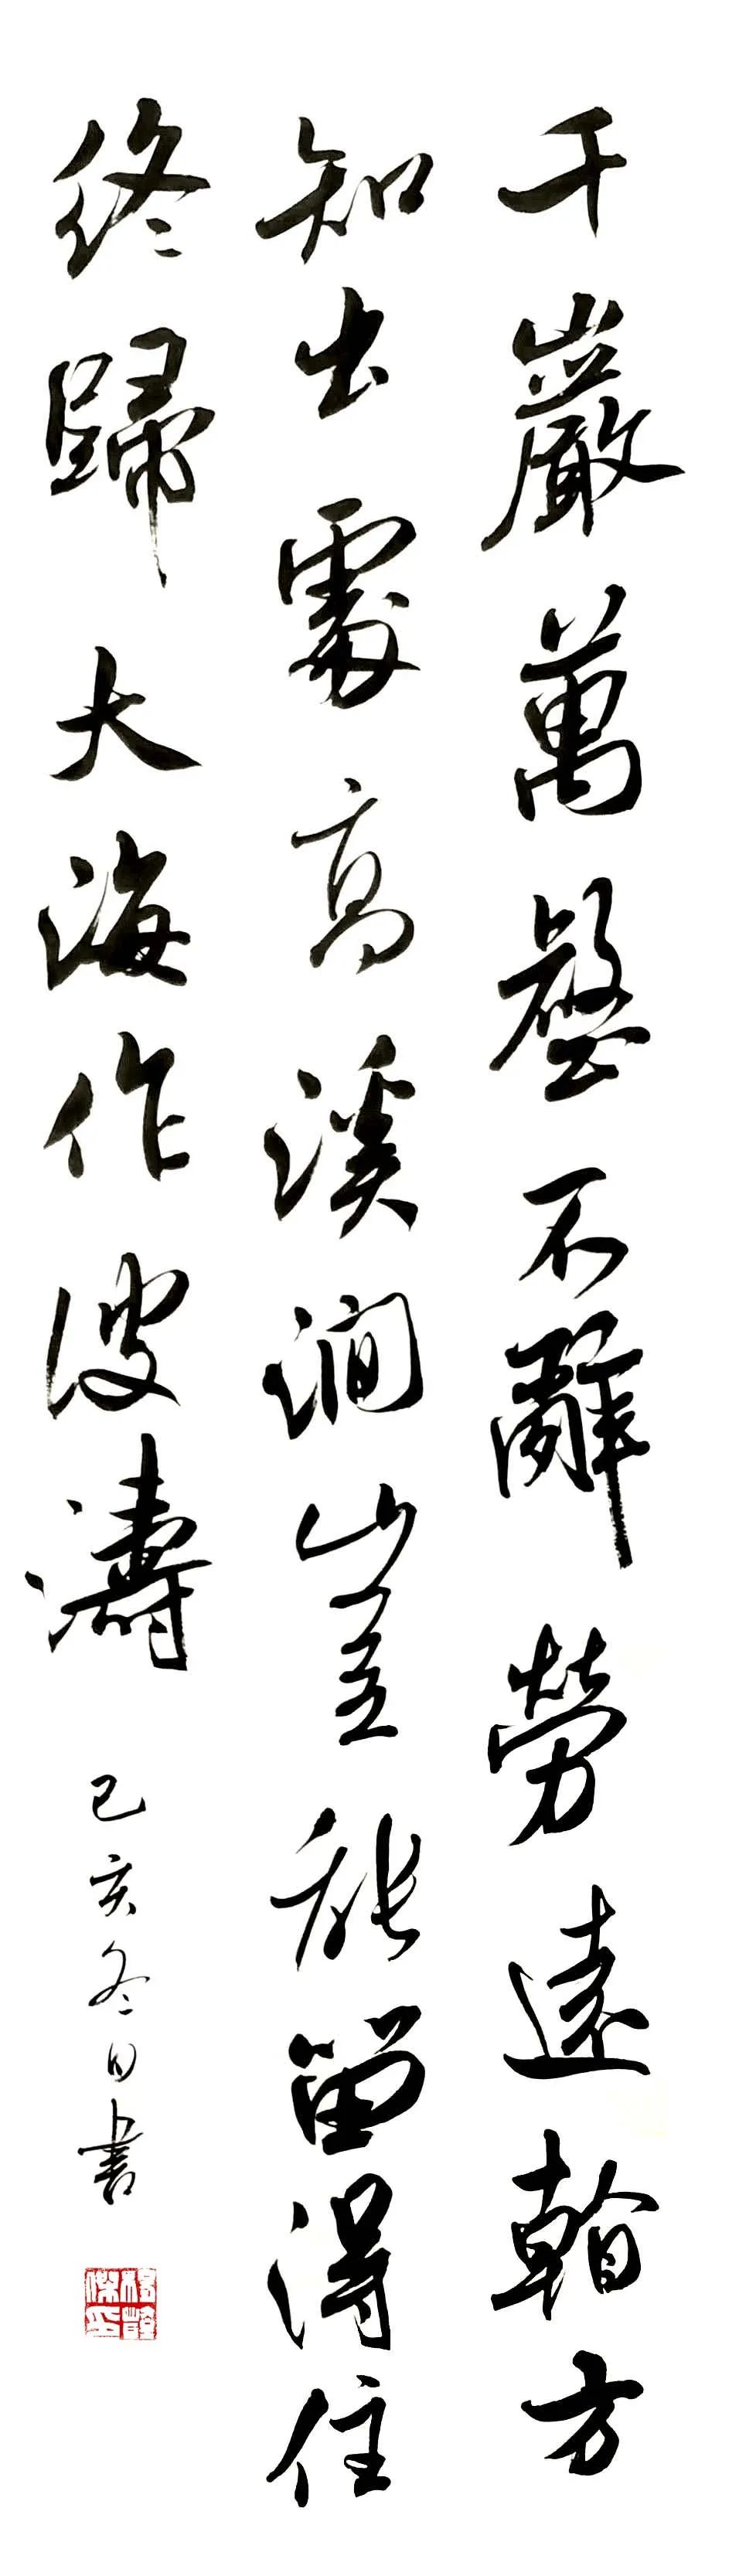 千巖萬壑不辭勞遠看方
知出處高溪澗豈能留得住
終歸大海作波濤
己亥冬日書